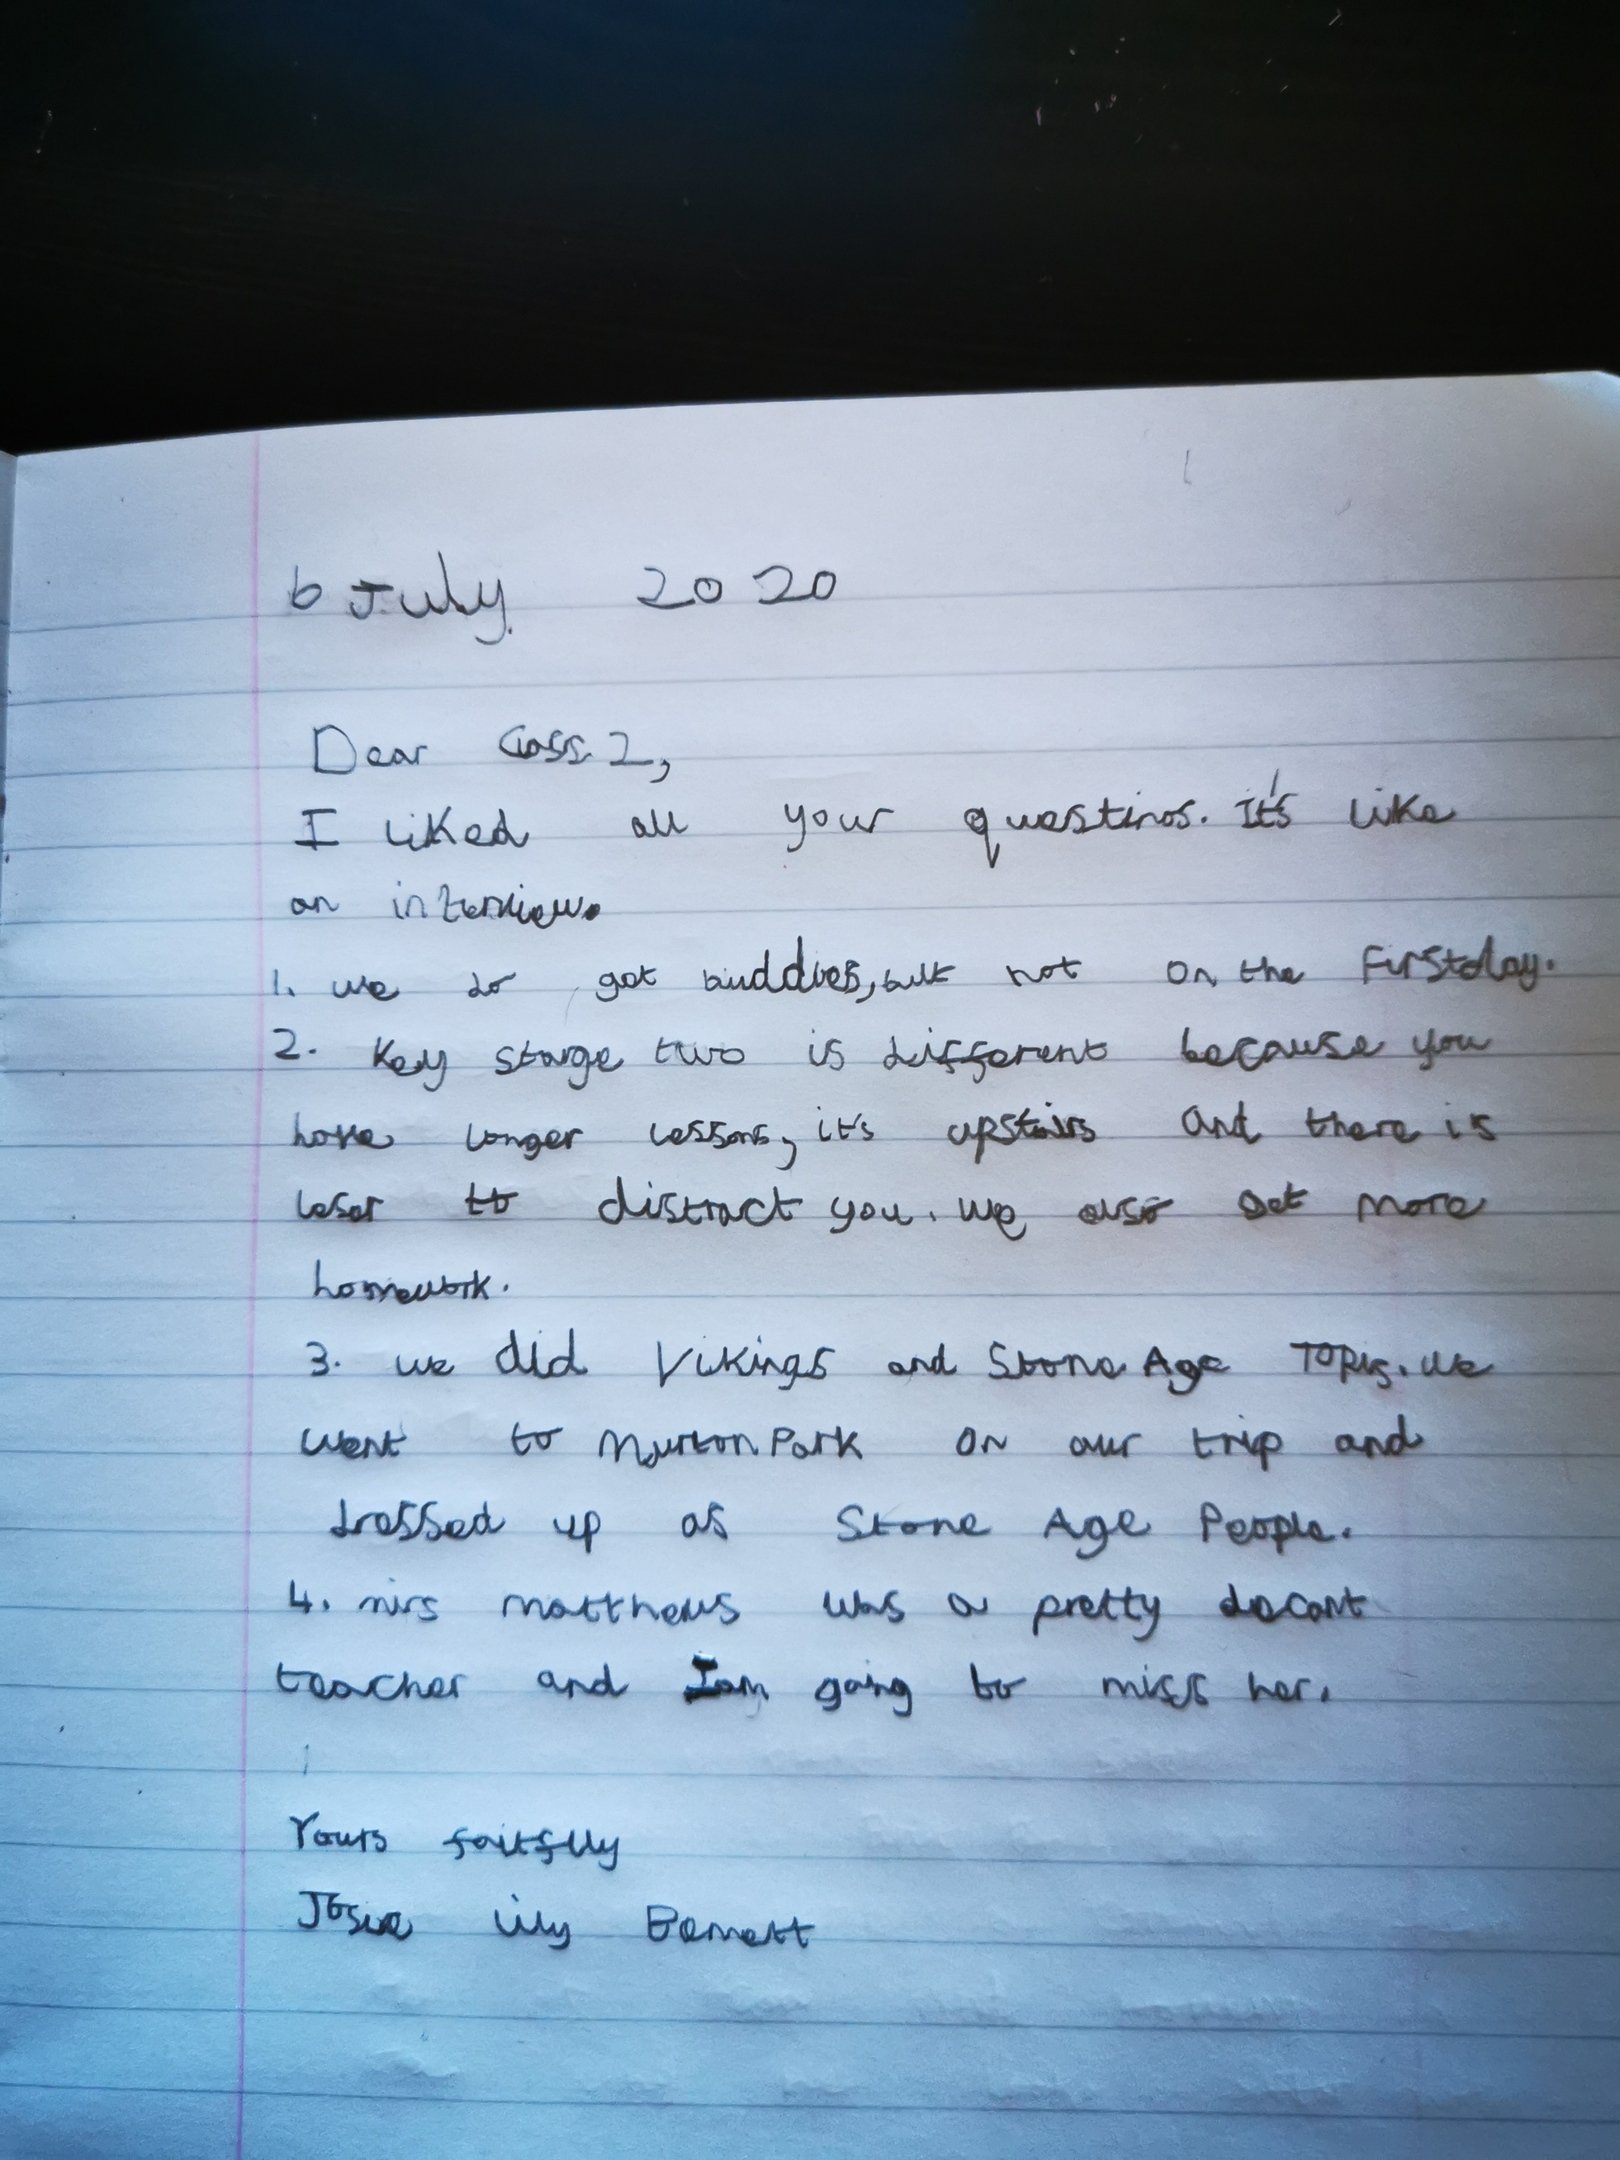 6 July 2020
Dear Class 2,
I liked all your questinos. It's like
an interview.
1. we do get buddies, but not on the first day.
2. Key stage two is different because you
have longer lessons, it's upstairs and there is
leser to distract you. We also get more
homework.
3. we did Vikings and Stone Age Topis. We
went to Murton Park on our trip and
dressed up as Stone Age People.
4. mrs matthews was a pretty decent
teacher and I am going to miss her.
Yours faitflly
Josie lily